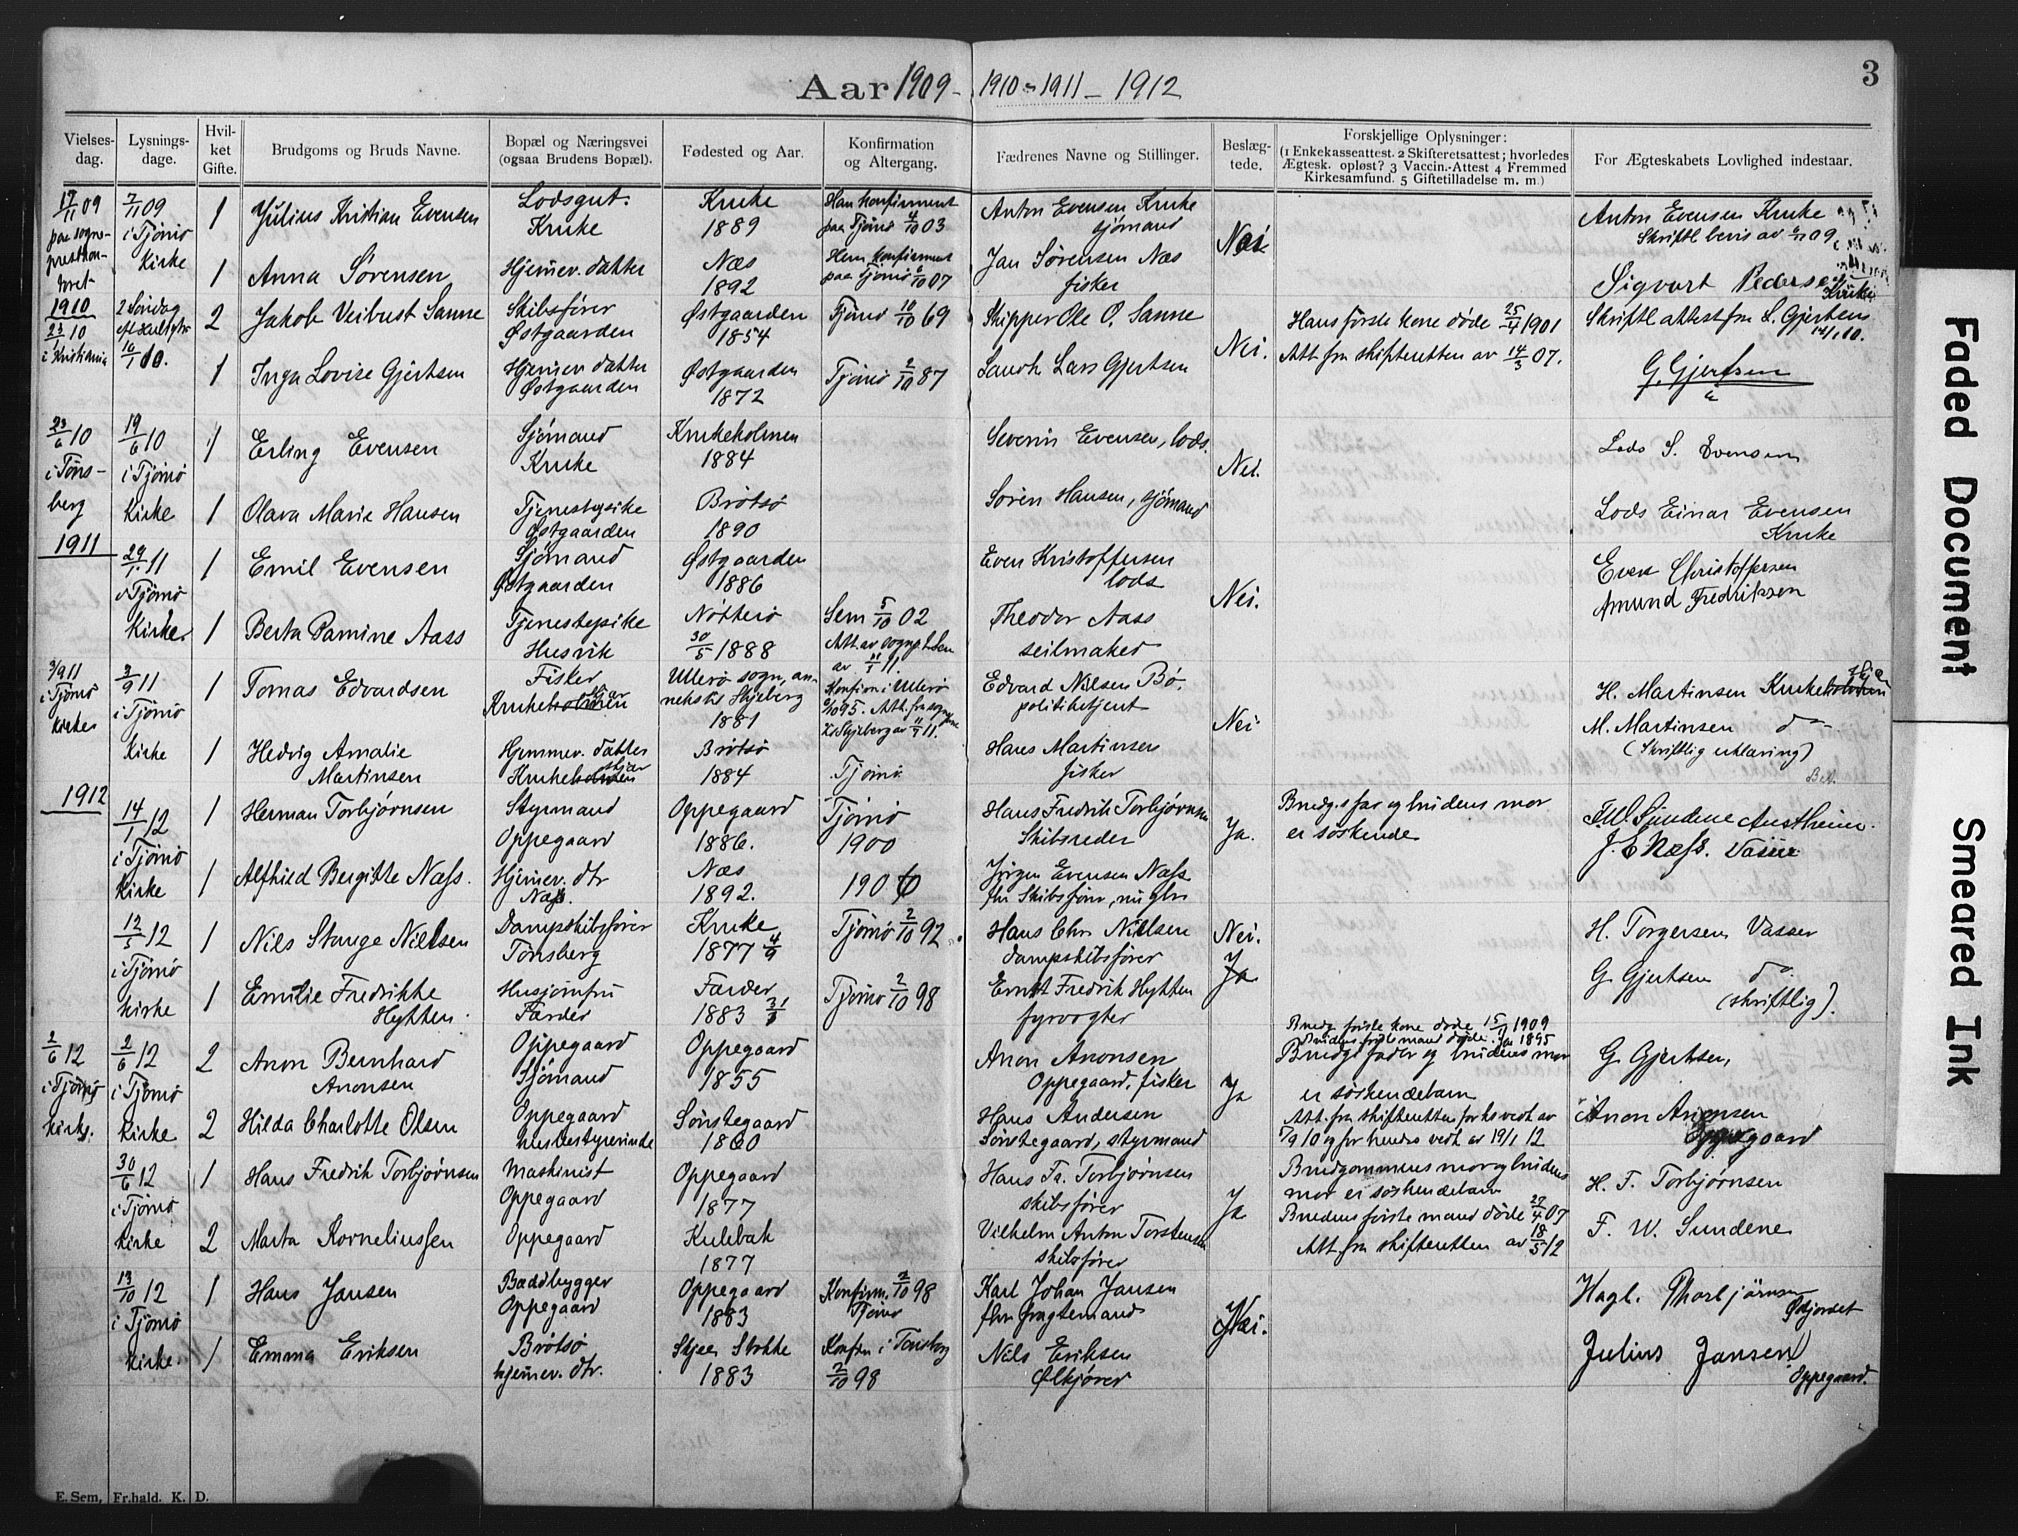 Aar 1909 - 1910 - 1911 - 1912
3
Vielses-dag.
Lysnings-dage.
Hvil-ket Gifte.
Brudgoms og Bruds Navne.
Bopæl og Næringsvei (ogsaa Brudens Bopæl).
Fødested og Aar.
Konfirmation og Altergang.
Fædrenes Navne og Stillinger.
Beslæg-tede.
Forskjellige Oplysninger: (1 Enkekasseattest. 2 Skifteretsattest; hvorledes Ægtesk. opløst? 3 Vaccin.-Attest 4 Fremmed Kirkesamfund. 5 Giftetilladelse m. m.)
For Ægteskabets Lovlighed indestaar.
17/11 09 paa sogne-prestkon-toret
7/11 09 i Tjømø Kirke
1 Julius Kristian Evensen
Lodsgut. Kruke
Kruke 1889
Han konfirmert paa Tjømø 4/10 03
Anton Evensen Kruke sjømand
Nei
Anton Evensen Kruke
Skriftl bevis av 09
1 Anna Sørensen
Hjemmev. datter
Næs 1892
Hun konfirmert paa Tjømø 6/10 07
Jan Sørensen Næs fisker
Sigvart Pedersen Kruke
1910
23/1 10 i Kristiania
2 Søndag eft 10/1 10.
2 Jakob Veibust Sanne
Skibsfører Østgaarden
Østgaarden 1854
Tjømø 10/10 69
Skipper Ole O. Sanne
Nei.
Hans første kone døde 25/4 1901
Att. fra skifteretten av 14/3 07.
Skriftl attest fra L. Gjertsen 14/1 10.
1 Inga Lovise Gjertsen
Hjemmev. datter Østgaarden
Østgaarden 1872
Tjømø 2/10 87
Lars Gjertsen
G. Gjertsen
23/6 10 i Tøns-berg
19/6 10 i Tjømø Kirke
1 Erling Evensen
Sjømand Kruke
Krukeholmen 1884
Severin Evensen, lods.
Nei.
Lods S. Evensen
1 Olava Marie Hansen
Tjenestepike Østgaarden
Brøtsø 1890
Søren Hansen, sjømand
Lods Einar Evensen Kruke
1911
29/1 11 i Tjømø Kirke
1 Emil Evensen
Sjømand Østgaarden
Østgaarden 1886
Even Kristoffersen lods
Nei.
Even Christoffersen
Amund Fredriksen
1 Berta Pamine Aass
Tjenestepike Husvik
Nøtterø 30/5 1888
Sem 5/10 02
Att. av sognep. i Sem av 11/1 11.
Theodor Aass seilmaker
3/9 11 i Tjømø Kirke
3/9 11 i Tjømø Kirke
1 Tomas Edvardsen
Fisker Krukeholmen skjær
Ullerø sogn, an-nekset Skjeberg 1881
Konfirm i Ullerø
Edvard Nilsen Bø. politibetjent
Nei
H. Martinsen Krukeholmen
M. Martinsen do
(Skriftlig erklæring)
1 Hedvig Amalie Martinsen
Hjemmev. datter Krukeholmen skjær
Brøtsø 1884
Tjømø
Hans Martinsen fisker
1912
14/1 12 i Tjømø Kirke
1 Herman Torbjørnsen
Styrmand Oppegaard
Oppegaard 1886.
Tjømø 1900
Hans Fredrik Torbjørnsen Skibsreder
Ja.
Brudg.s far og brudens mor er søskende
F.W. Sundene Austheim.
J. E Næss. Vasser
1 Alfhild Bergitte Næss.
Hjemmev. dtr Næss.
Næs 1892.
190
Jørgen Evensen Næss
fhv Skibsfører,
12/5 12 i Tjømø kirke
1 Nils Stange Nielsen
Dampskibsfører Tønsberg
Kruke 1877 4/9
Tjømø 2/10 92.
Hans Chr Nielsen dampskibsfører
Nei.
Ja
H. Torgersen Vasser
1 Emilie Fredrikke Hytten.
Husjomfru Færder
Færder 1883
Tjømø 2/10 98
Ernst Fredrik Hytten fyrvogter
G Gjertsen do
(skriftlig).
2/6 12 i Tjømø kirke.
2/6 12 i Tjømø Kirke
2 Anon Bernhard Anonsen
Oppegaard Sjømand
Oppegaard 1855
Anon Anonsen Oppegaard, fisker
Ja
Brudg første kone døde 15/11 1909
Brudens første mand døde 1895
Brudgs fader og brudens mor er søskendebarn
Att. fra skifteretten for hs vedk av 7/9 10 og for hendes vedk. av 19/1 12
G Gjertsen,
Anon Anonsen Oppegaard
2 Hilda Charlotte Olsen
Oppegaard husbestyrerinde
Sønstegaard 1860
Hans Andersen Sønstegaard, styrmand
30/6 12 i Tjømø Kirke
1 Hans Fredrik Torbjørnsen
Maskinist Oppegaard
Oppegaard 1877
Hans Fr. Torbjørnsen skibsfører
Ja
Brudgommens mor og brudens mor er søskendebarn
Brudens første mand døde 27/4 07
Att. fra skifteretten av 18/5 12
H. F. Torbjørnsen
F. W. Sundene
2 Marta Korneliussen
Oppegaard
Kulebak 1877
Vilhelm Anton Torstensen skibsfører
13/10 12 i Tjømø kirke
1 Hans Jansen
Baadbygger Oppegaard
Oppegaard 1883
Konfirm. 2/10 98 Tjømø
Karl Johan Jansen fhv fragtemand
Nei.
Hagl. Thorbjørnsen
1 Emma Eriksen
Brøtsø hjemmev. dtr.
Skjee Stokke 1883
Konfirm i Tønsberg 2/10 98
Nils Eriksen Ølkjører
Julius Jansen Oppegaard.
E. Sem, Fr.hald. K. D.
Faded Document
Smeared Ink